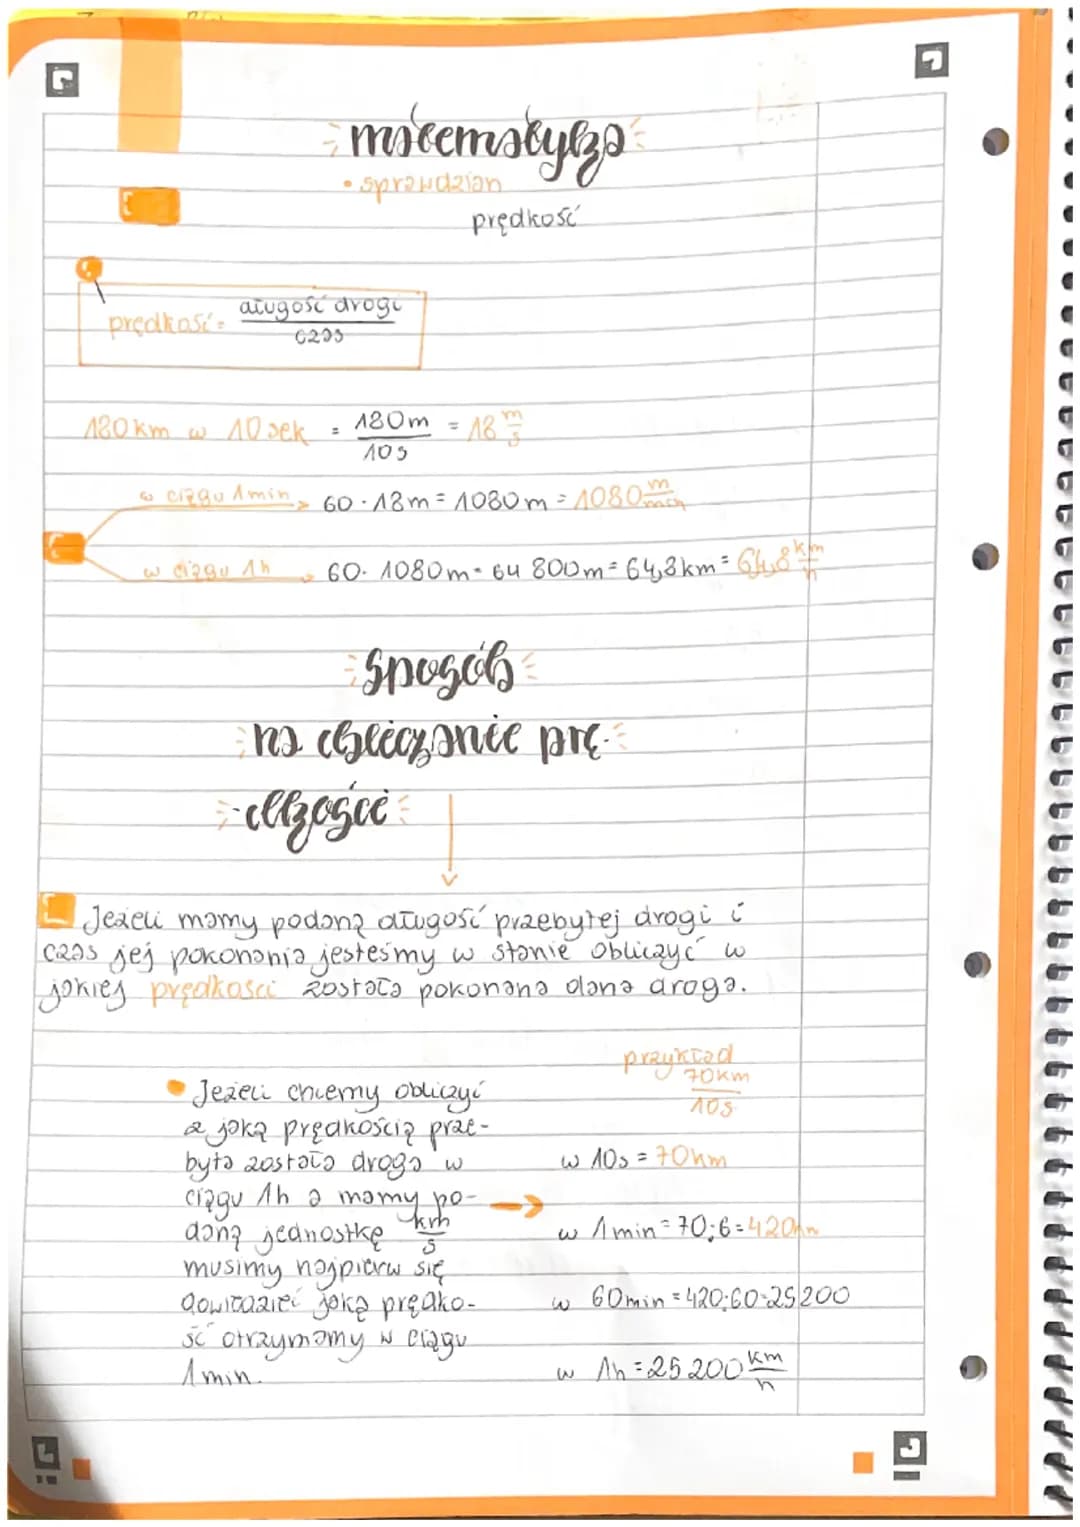 matematyka
• sprawdzian
prędkość
prędkość = długość drogi / czas
180 km w 10 sek = 180m / 10s = 18 m/s
w ciągu 1min 60 · 18m = 1080m = 1080 m/min
w ciągu 1h 60 · 1080m = 64 800m = 64,8km = 64,8 km/h
Sposób
na obliczanie prę-
-dkości
Jeżeli mamy podaną długość przebytej drogi i
czas jej pokonania jesteśmy w stanie obliczyć w
jakiej prędkości została pokonana dana droga.
• Jeżeli chcemy obliczyć
z jaką prędkością prze-
była została droga w
ciągu 1h a mamy po-
daną jednostkę km/s
musimy najpierw się
dowiedzieć jaką prędko-
ść otrzymamy w ciągu
1min.
przykład
70km / 10s
w 10s = 70km
w 1min = 70·6 = 420km
w 60min = 420·60=25200
w 1h = 25 200 km/h